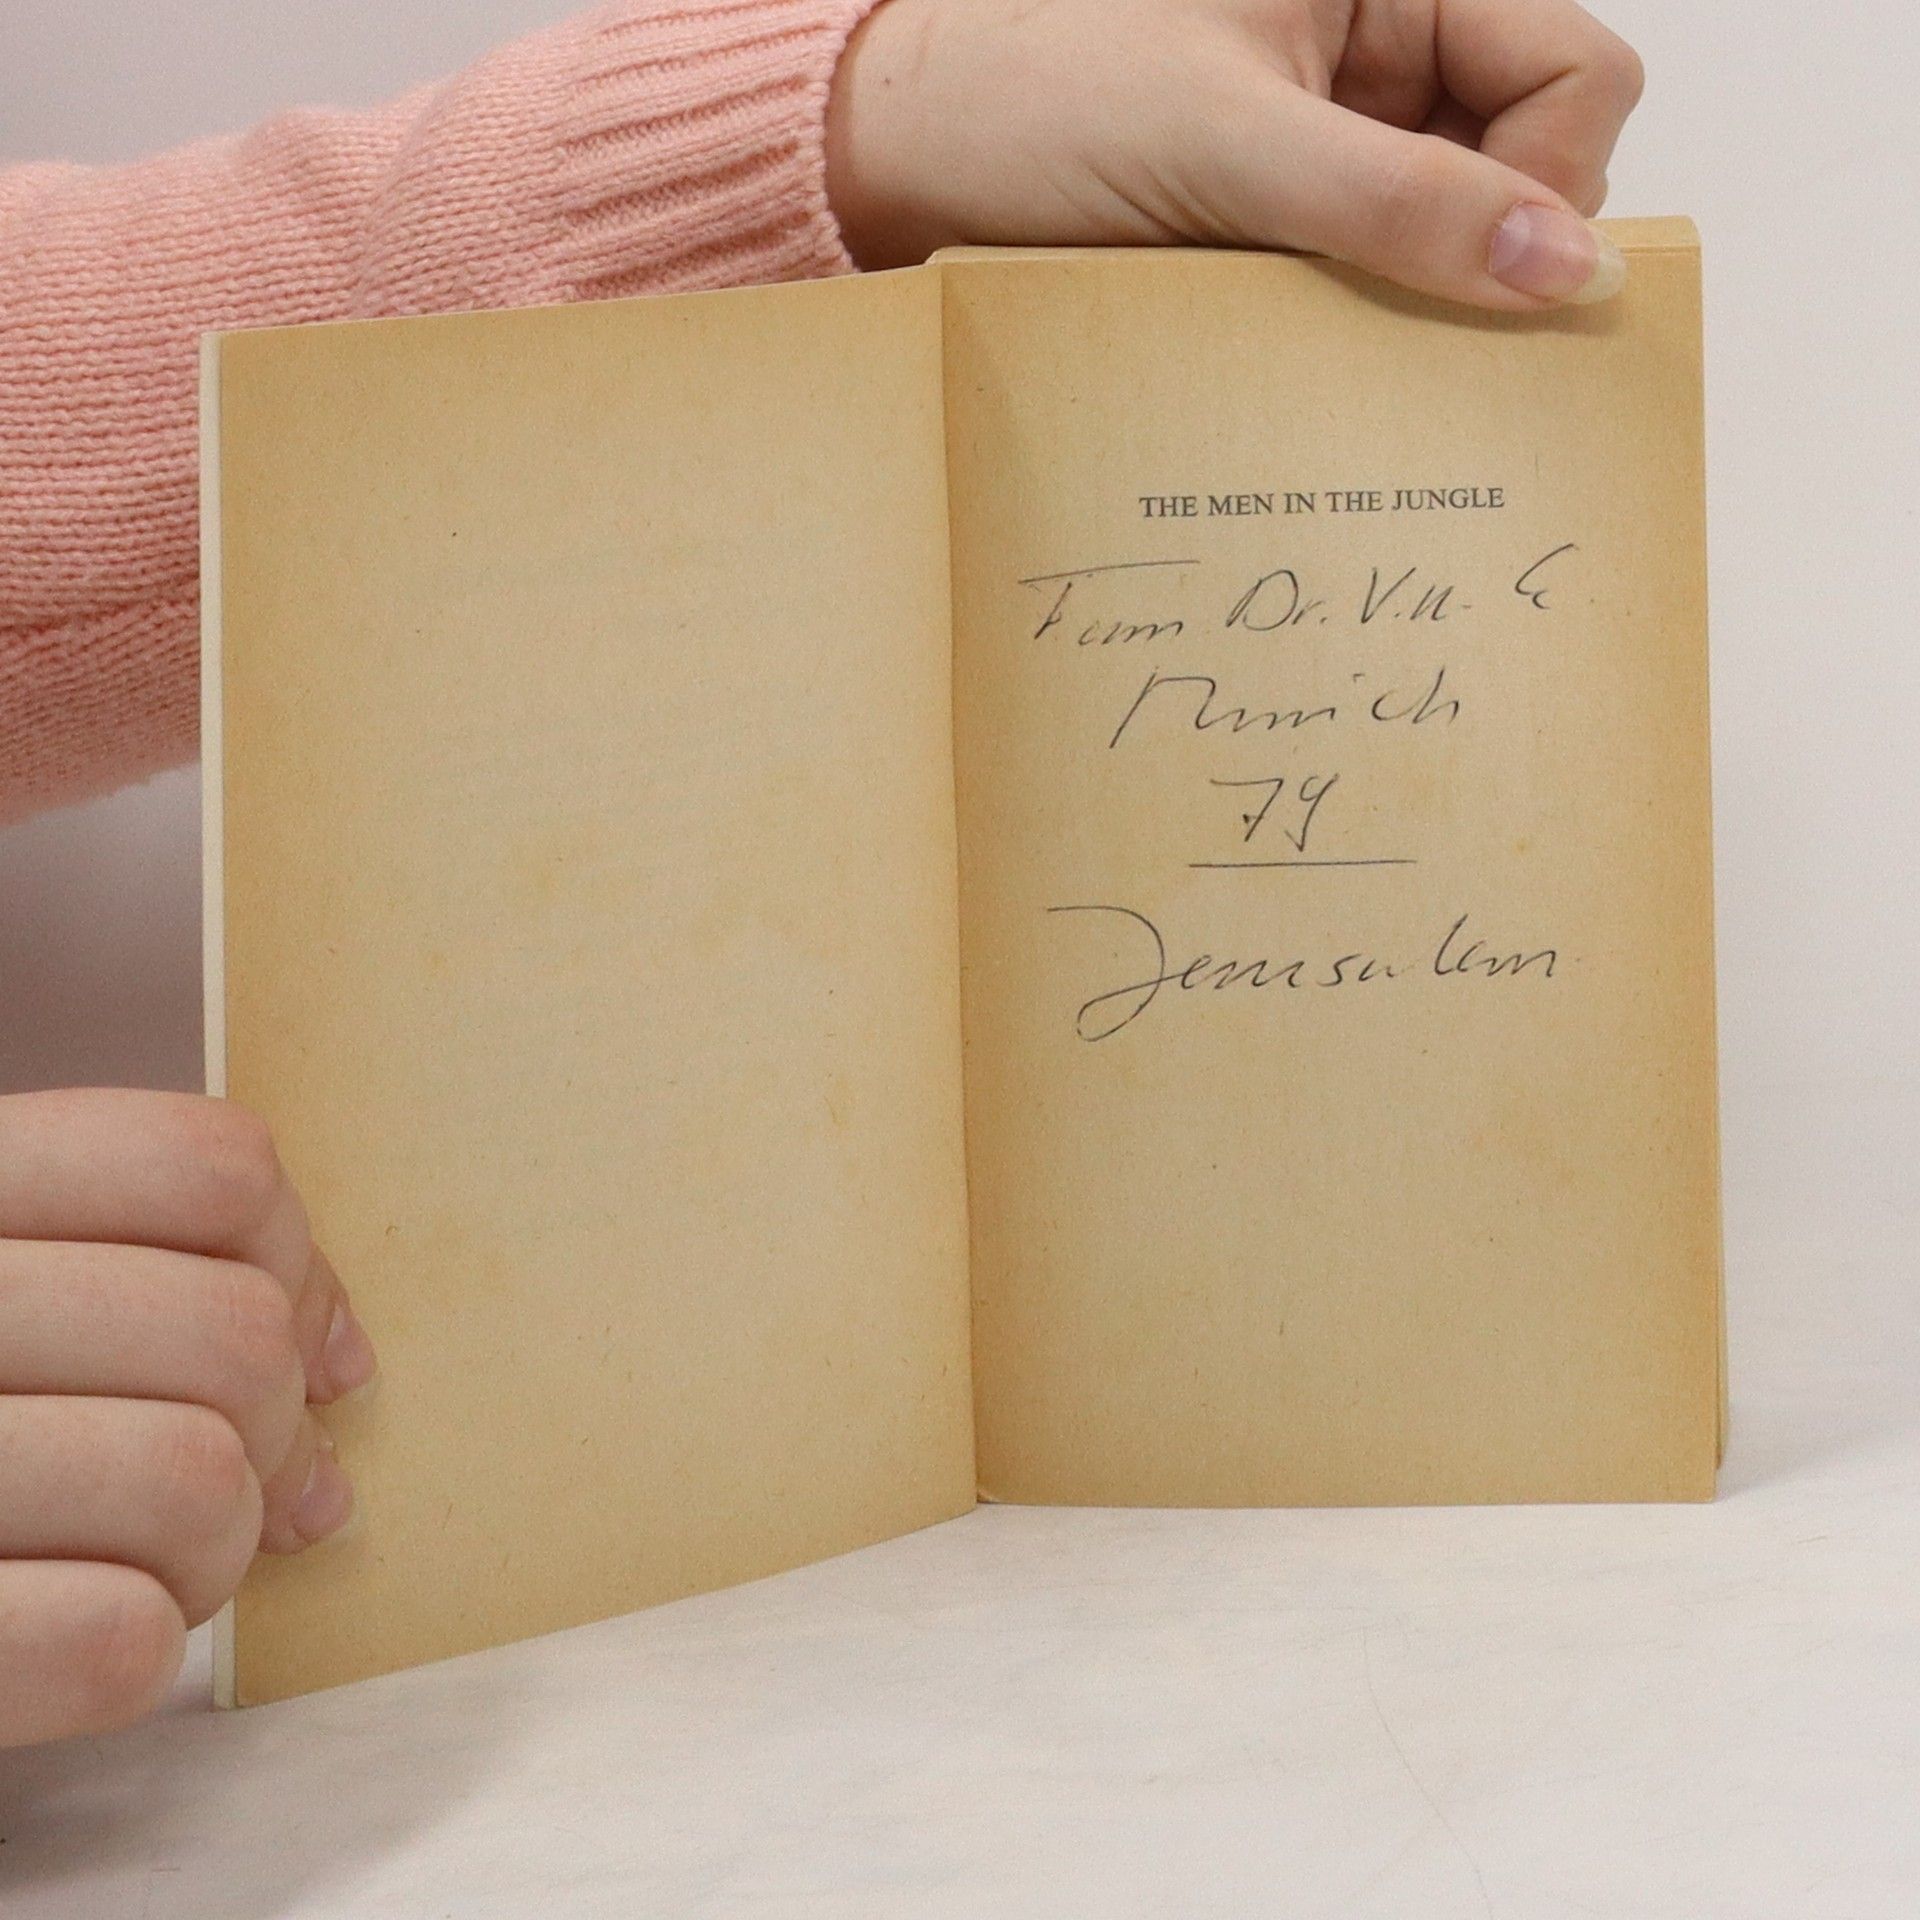 THE MEN IN THE JUNGLE
Fam Dr. V. u. E
79
Jerusalem